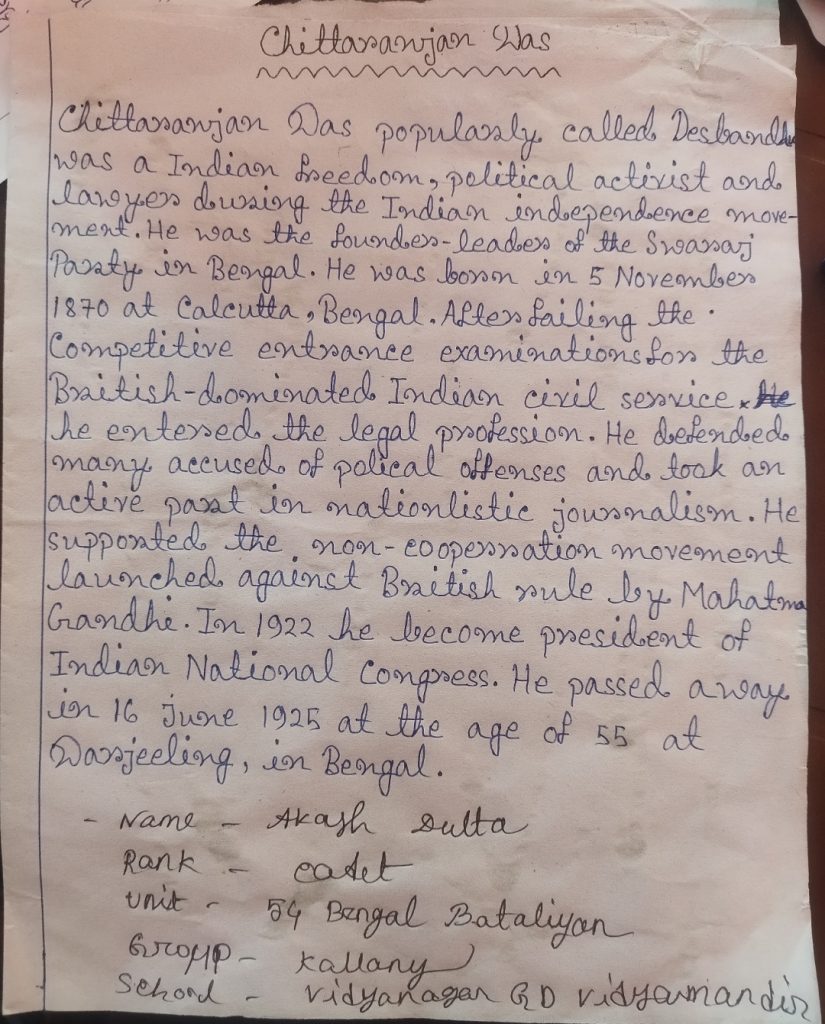 Chittaranjan Das
Chittaranjan Das popularly called Desbandhu
was a Indian freedom, political activist and
lawyer during the Indian independence move-
ment. He was the founder-leader of the Swaraj
Party in Bengal. He was born in 5 November
1870 at Calcutta, Bengal. After failing the
Competitive entrance examinations for the
British-dominated Indian civil service. He
he entered the legal profession. He defended
many accused of polical offenses and took an
active part in nationlistic journalism. He
supported the non-cooperration movement
launched against British rule by Mahatma
Gandhi. In 1922 he become president of
Indian National Congress. He passed away
in 16 June 1925 at the age of 55 at
Darjeeling, in Bengal.
- Name - Akash Dutta
Rank - cadet
Unit - 54 Bengal Bataliyan
Group - Kallany
School - Vidyanagar GD Vidyamandir